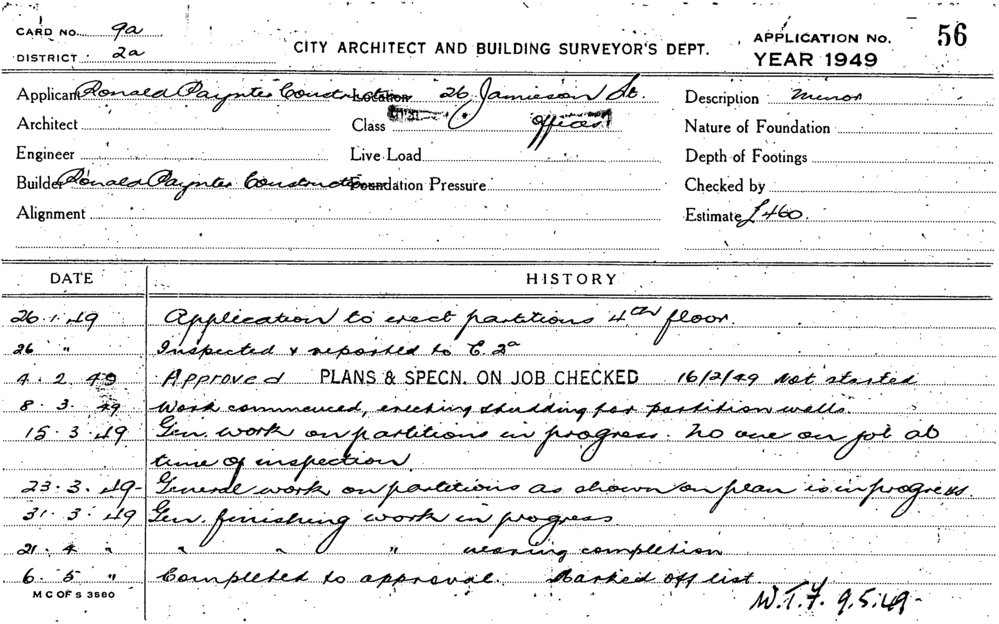 CARD NO. 9a
DISTRICT 2a
CITY ARCHITECT AND BUILDING SURVEYOR'S DEPT.
APPLICATION NO. 56
YEAR 1949
Applicant Ronald Paynter Construction Location 26 Jamieson St. Description Minor
Architect Class offices Nature of Foundation
Engineer Live Load Depth of Footings
Builder Ronald Paynter Construction Foundation Pressure Checked by
Alignment Estimate £460.
DATE HISTORY
26.1.49 Application to erect partitions 4th floor.
26 " Inspected & reported to C. 2a
4.2.49 Approved PLANS & SPECN. ON JOB CHECKED 16/2/49 Not started
8.3.49 Work commenced, erecting studding for partition walls.
15.3.49 Gen. work on partitions in progress. No one on job at
time of inspection.
23.3.49- General work on partitions as shown on plan is in progress.
31.3.49 Gen. finishing work in progress.
21.4 " " " " nearing completion
6.5 " Completed to approval. Marked off list.
M C OF S 3580
W.T.F. 9.5.49-